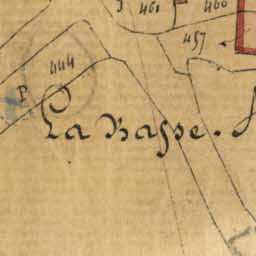 461
460
457
444
P
La Basse.